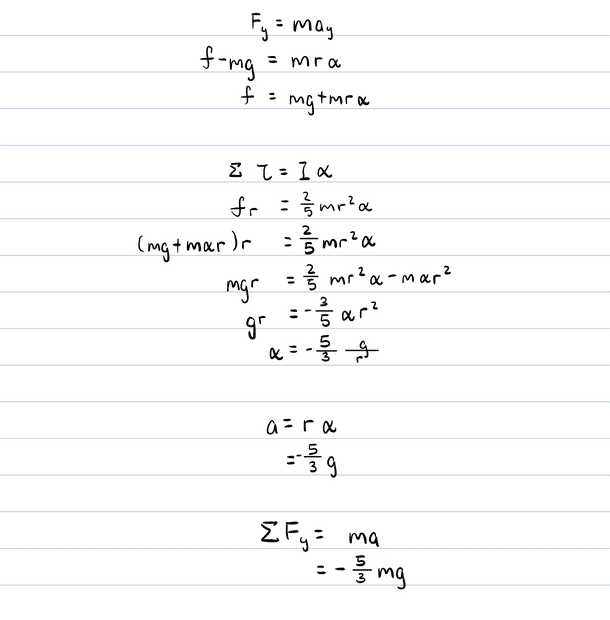 F_y = ma_y
f - mg = mrα
f = mg + mrα
Σ τ = I α
fr = 2/5 mr²α
(mg + mαr)r = 2/5 mr²α
mgr = 2/5 mr²α - mαr²
gr = -3/5 αr²
α = -5/3 g/r
a = r α
= -5/3 g
Σ F_y = ma
= -5/3 mg